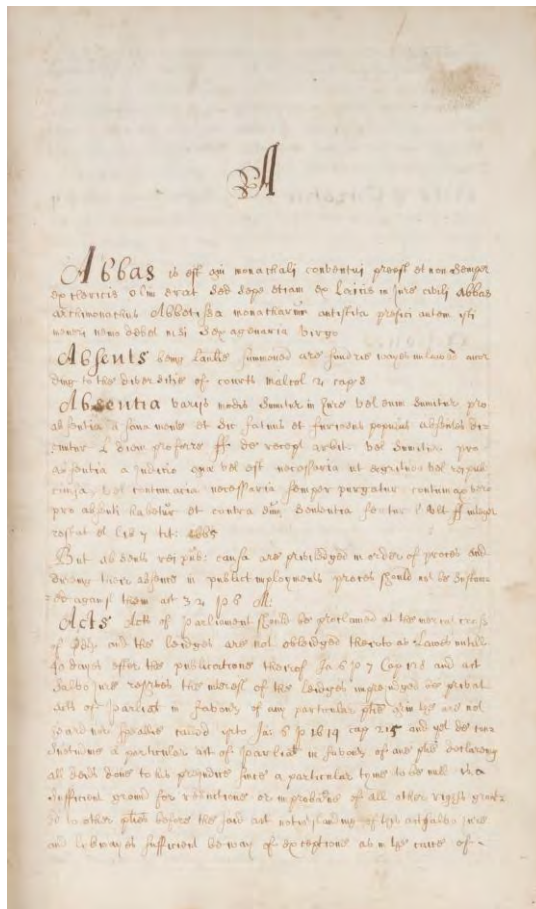 A
Abbas is est qui monachali conventui præest et non semper
ex clericis olim erat sed sepe etiam ex Laicis in jure civili Abbas
archimonachus Abbetissa monacharum antistita prefici autem isti
muneri nemo debet nisi sexagenaria virgo
Absents being laulie summoned are sundrie wayes unlawed accor
ding to the diversities of courts Malcol 2 cap 8
Absentia varijs modis sumitur in jure vel enim sumitur pro
absentia a sana mente et sic fatuus et furiosus populus absentes di
cuntur ff de recept arbit: vel sumitur pro
absentia a judicio quæ vel est necessaria ut ergo vel reipub
causa, vel contumacia necessaria semper purgatur contumax vero
pro absenti habetur et contra eum sententia fertur ff
et lib 7 tit:
But absents rei pub: causa are priviledged in order of proces and
during their absence in publict imployments proces should not be
against them act 32 p 6
Acts Acts of parliament should be proclaimed at the mercat cross
of and the leidges are not obleidged therto as Lawes untill
40 dayes after the publicatione therof Ja 6 p 7 Cap 128 and act
salvo jure reserves the interest of the leidges unprejudged be privat
acts of parliat in favours of any particular who are not
heard nor Ja: 6 p 1614 cap 215 and yet de
a particular act of parliat in favours of ane declareing
all deids done to his prejudice since a particular tyme to be null is a
sufficient ground for reductione or improbatione of all other rights grant
ed to other before the said act notwithstanding of the act salvo jure
and sufficient be way of exceptione as in the caice of